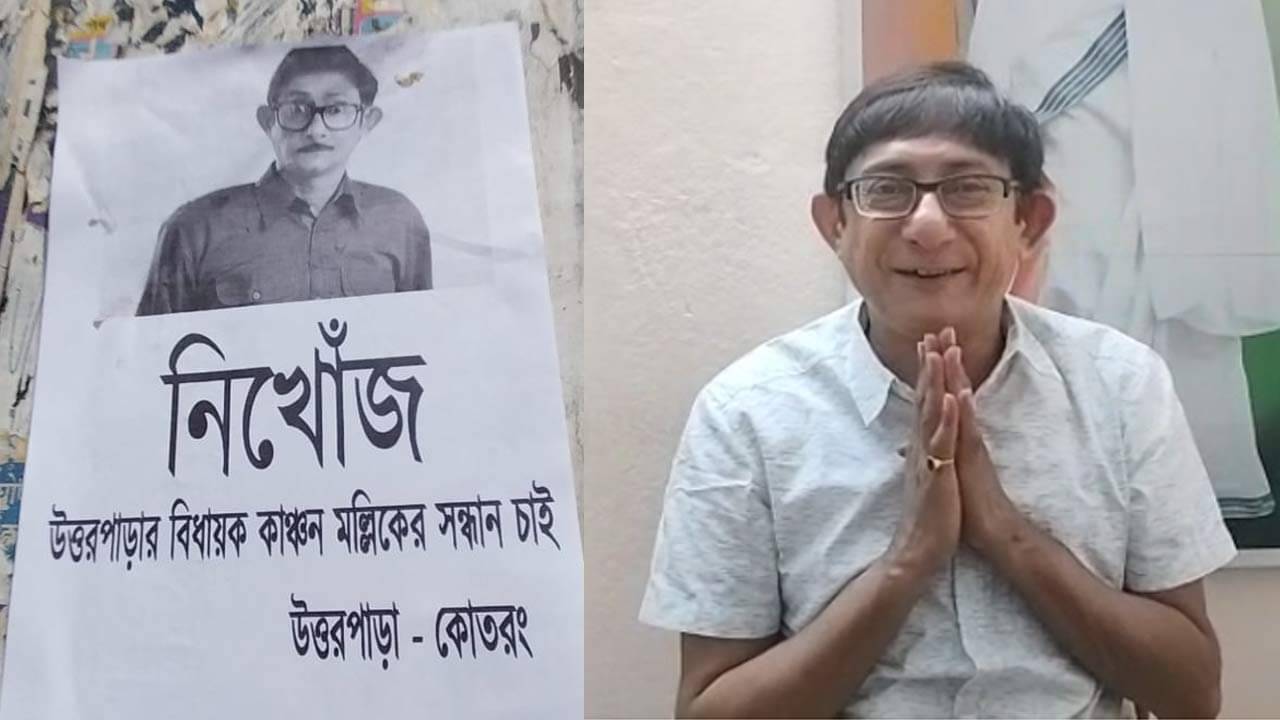 নিখোঁজ
উত্তরপাড়ার বিধায়ক কাঞ্চন মল্লিকের সন্ধান চাই
উত্তরপাড়া - কোতরং